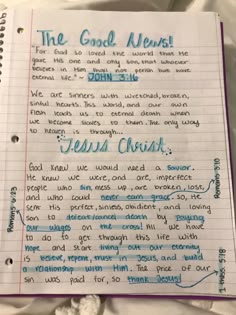 The Good News!
"For God so loved the world that He
gave His one and only Son, that whoever
believes in Him shall not perish but have
eternal life." - JOHN 3:16
We are sinners with wretched, broken,
sinful hearts. This world, and our own
flesh leads us to eternal death when
we become slaves to them. The only way
to heaven is through...
Jesus Christ.
God knew we would need a Savior.
He knew we were, and are, imperfect
people who sin, mess up, are broken, lost,
and who could never earn grace. So, He
sent His perfect, sinless, obedient, and loving
son to defeat/conquer death by paying
our wages on the cross! All we have
to do to get through this life with
hope and start living out our eternity
is believe, repent, trust in Jesus, and build
a relationship with Him. The price of our
sin was paid for, so thank Jesus!
Romans 6:23
Romans 3:10